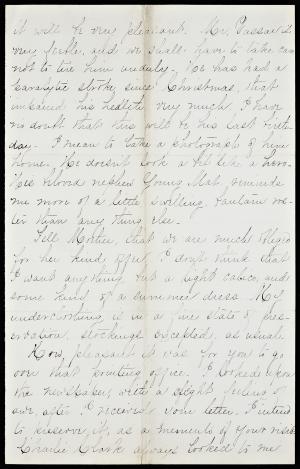 it will be very pleasant. Mr. Passavil
very feeble, and we shall have to take care
not to tire him unduly. He has had a
paralytic stroke, since Christmas, that
impaired his health very much. I have
no doubt that this will be his last birth-
day. I mean to take a photograph of him
home. He doesn't look a bit like a hero.
His blood nephew Young Mat. reminds
me more of a little swelling, than
than any thing else.
Tell Mother, that we are much obliged
for her kind offer. I don't think that
I want anything, but a light calico, and
some kind of a summer dress. My
underclothing, is in a fine state of pres-
ervation, stockings excepted, as usual.
How pleasant it was for you to go
over that printing office. I looked upon
the newspaper, with a slight feeling of
awe, after I received your letter. I intend
to preserve it, as a memento of your visit.
Charlie Clark always looked to me